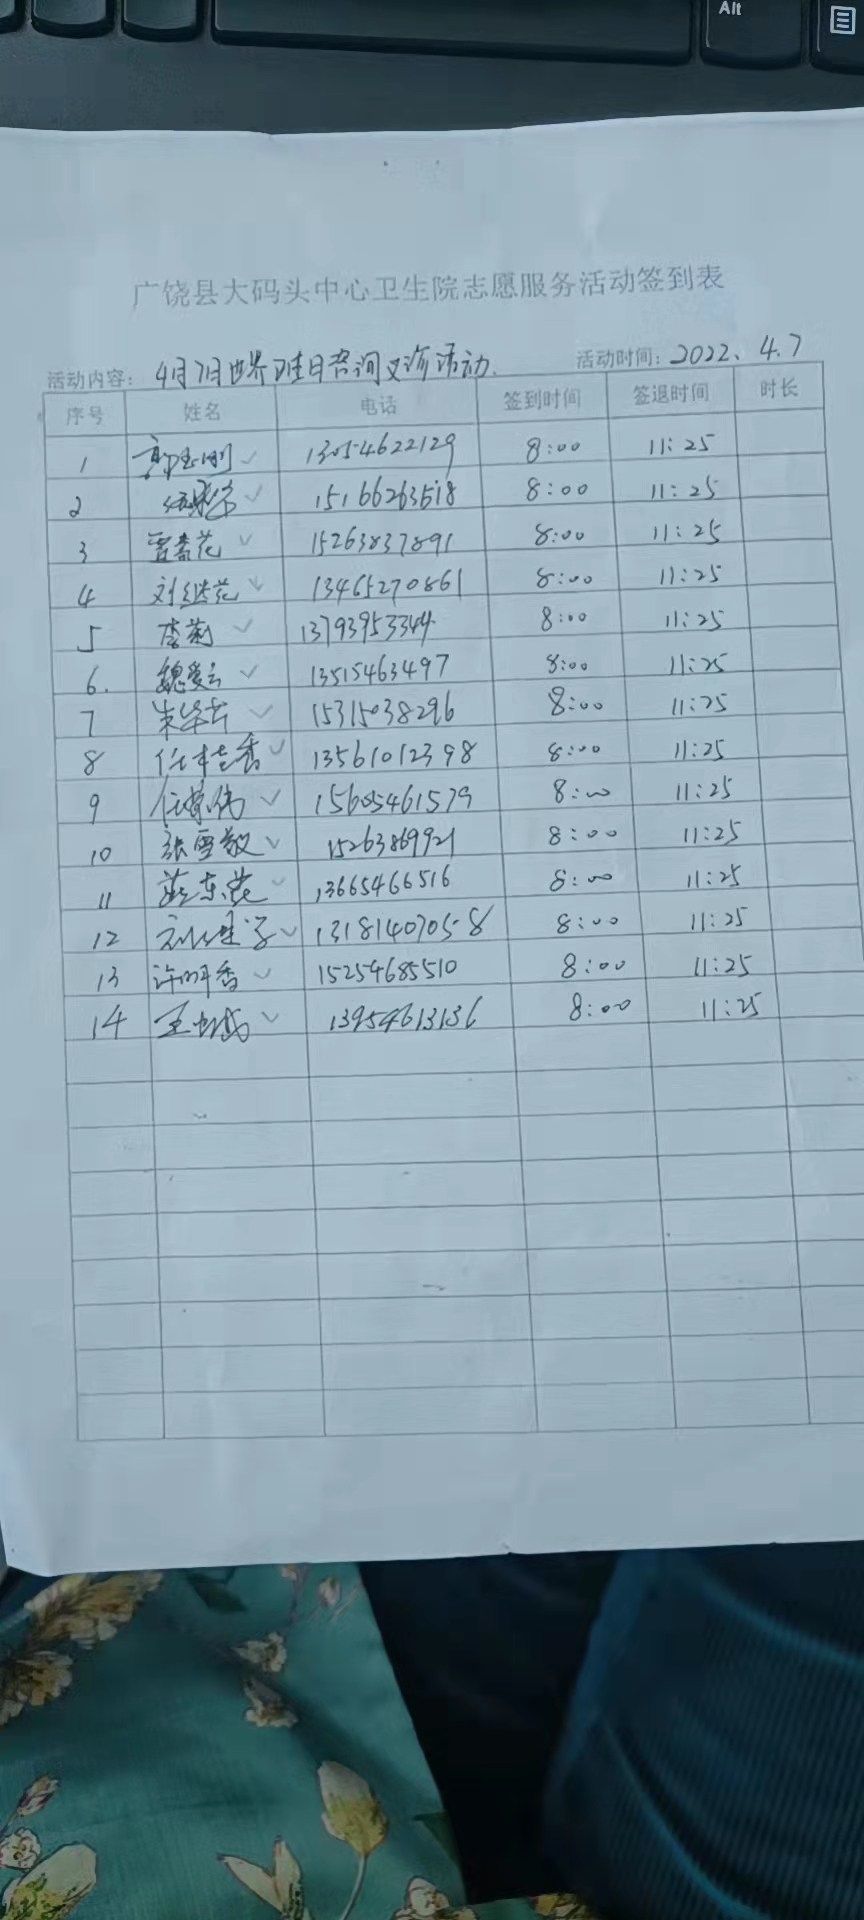 Alt
广饶县大码头中心卫生院志愿服务活动签到表
活动内容: 4月7日世界卫生日咨询义诊活动.
活动时间: 2022、4.7
序号 姓名 电话 签到时间 签退时间 时长
1 13054622129 8:00 11:25
2 15166263618 8:00 11:25
3 贾春花 15263837891 8:00 11:25
4 刘继花 13465270861 8:00 11:25
5 李菊 13793953344 8:00 11:25
6. 魏爱云 13515463497 8:00 11:25
7 15315038296 8:00 11:25
8 任桂香 13561012398 8:00 11:25
9 15605461579 8:00 11:25
10 张雪敏 15263869921 8:00 11:25
11 13665466516 8:00 11:25
12 13181407058 8:00 11:25
13 许明香 15254685510 8:00 11:25
14 13954613136 8:00 11:25